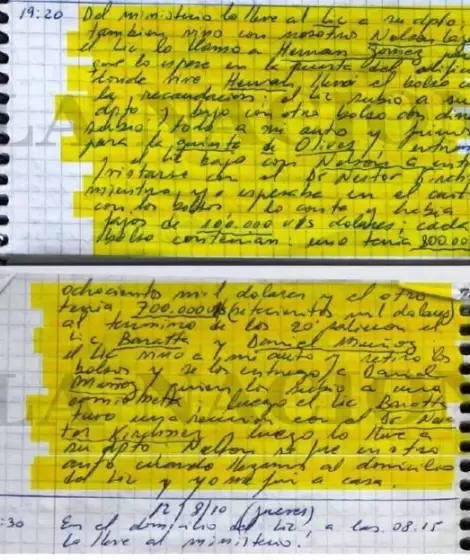 19:20 Del ministerio lo lleve al Lic a su dpto
tambien vino con nosotros Nelson
el Lic lo llamo a Hernan Gomez
que lo espere en la puerta del
donde vive Hernan llevó el bolso
la recaudacion; el Lic subio a su
dpto y bajo con otro bolso con
subio todo a mi auto y
para la quinta de Olivos;
el Lic bajo con Nelson a
vistarse con el Dr Nestor
mientras yo esperaba en el
con los bolsos lo conte y habia
fajos de 100.000 U$S dolares, cada
bolso contenian: uno tenia 800.00
ochocientos mil dolares y el otro
tenia 700.000 (setecientos mil dolares)
al termino de los 20' salieron el
Lic Baratta y Daniel Muñoz
el Lic vino a mi auto y retiro los
bolsos y se los entrego a Daniel
Muñoz, quien los subio a una
camioneta, luego el Lic Baratta
tuvo una reunion con el Dr Nes
tor Kirchner y luego lo lleve a
su dpto Nelson se fue en otro
auto cuando llegamos al domicilio
del Lic y yo me fui a casa.
12/8/10 (jueves)
:30 En el domicilio del Lic a las 08.15
lo lleve al ministerio.
LA NACION
LA NACION